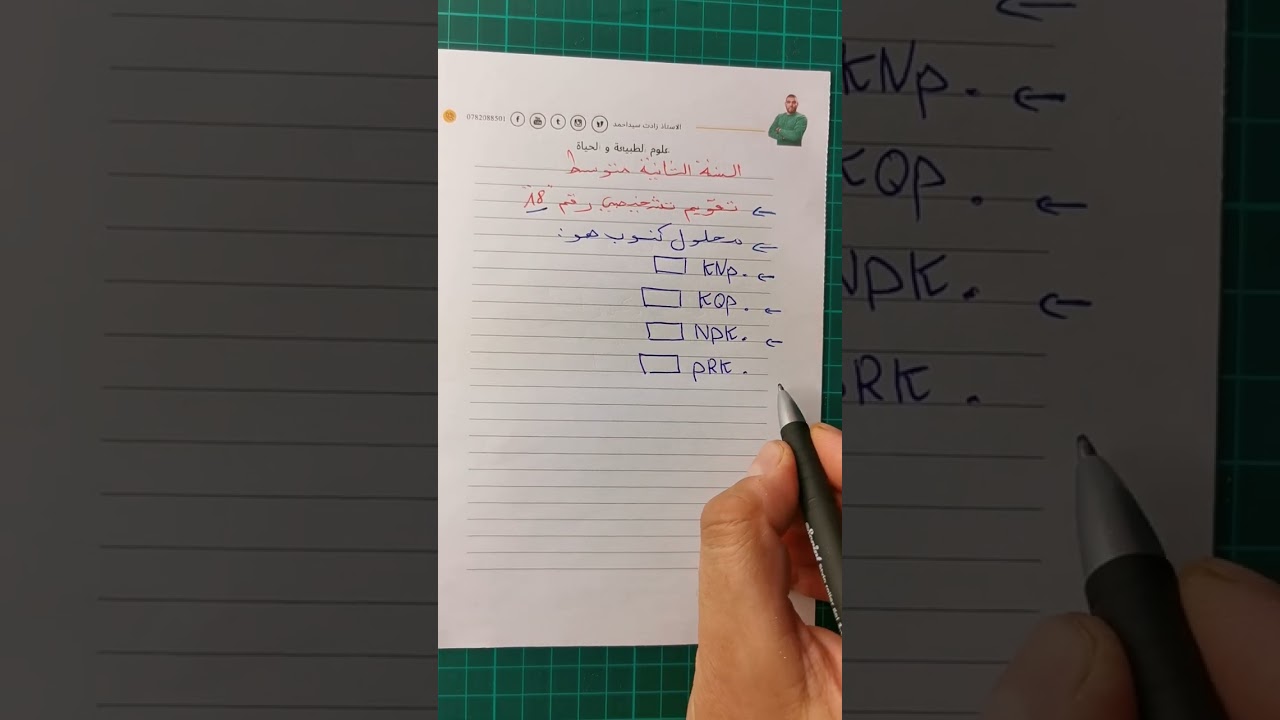 0782088501 الاستاذ زادت سيداحمد
علوم الطبيعة و الحياة
السنة الثانية متوسط
← تقويم تشخيصي رقم "18"
← محلول كنوب هو:
← KNp.
← KQp.
← NpK.
pRK.